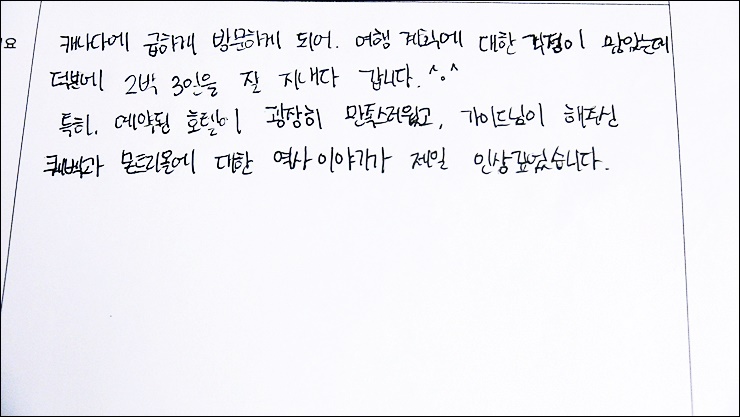 요
캐나다에 급하게 방문하게 되어. 여행 계획에 대한 걱정이 많았는데
덕분에 2박 3일을 잘 지내다 갑니다. ^o^
특히, 예약된 호텔이 굉장히 만족스러웠고, 가이드님이 해주신
퀘백과 몬트리올에 대한 역사 이야기가 제일 인상깊었습니다.